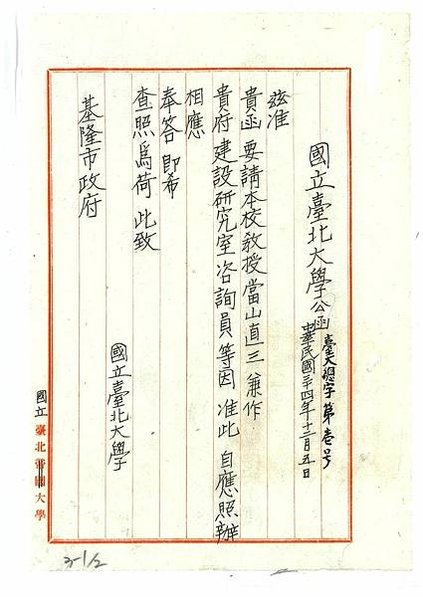 國立臺北大學公函
臺大總字第壹號
中華民國卅四年十二月五日
茲准
貴函 要請本校教授當山直三兼作
貴府 建設研究室咨詢員等因 准此 自應照辦
相應
奉答 即希
查照爲荷 此致
基隆市政府
國立臺北大學
國立臺北帝國大學
2-1/2